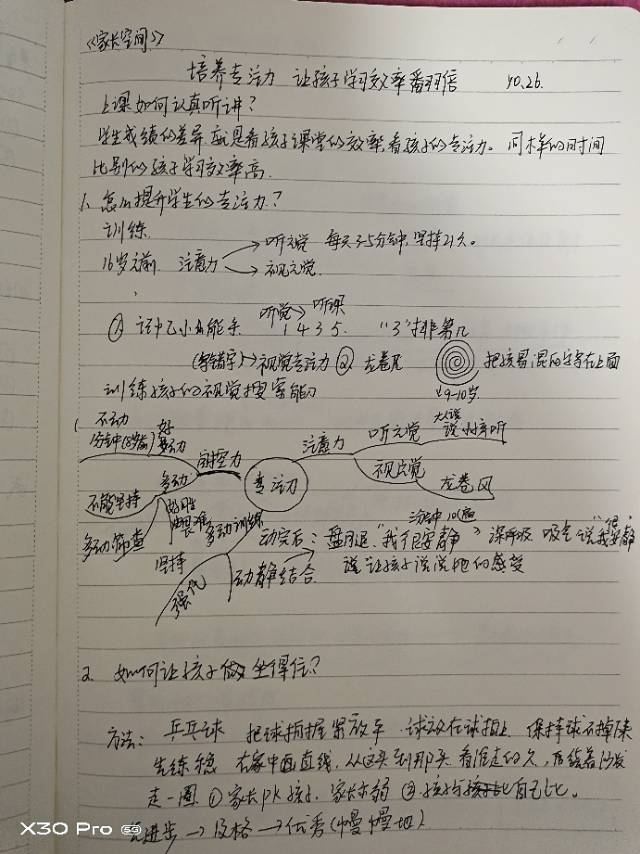 《家长空间》
培养专注力 让孩子学习效率翻倍 10.26.
上课如何认真听讲?
学生成绩的差异就是看孩子课堂的效率,看孩子的专注力。同样的时间
比别的孩子学习效率高.
1、怎么提升学生的专注力?
训练.
听觉 每天3-5分钟,坚持21天。
16岁之前 注意力
视觉
听觉→听课
① 1 4 3 5. "3"排第几
视觉专注力 ② 龙卷风 把孩易混的字写在上面
9-10岁.
训练孩子的视觉搜索能力
不动
好动
多动
自控力
专注力
注意力
听觉
大人说
视觉
龙卷风
不能坚持
多动筛查
多动训练
坚持
强化
动静结合
动完后:盘腿 "我很安静" 深呼吸 吸气说"我很安静"
说让孩子说说他的感受
2. 如何让孩子做坐得住?
方法: 乒乓球 把球拍握紧放平 球放在球拍上 保持球不掉下来
先练稳 在家中画直线,从这头到那头 看谁走的久,后绕着沙发
走一圈 ① 家长PK孩子, 家长示弱 ② 孩子与自己比。
先进步→及格→优秀(慢慢地)
X30 Pro 5G